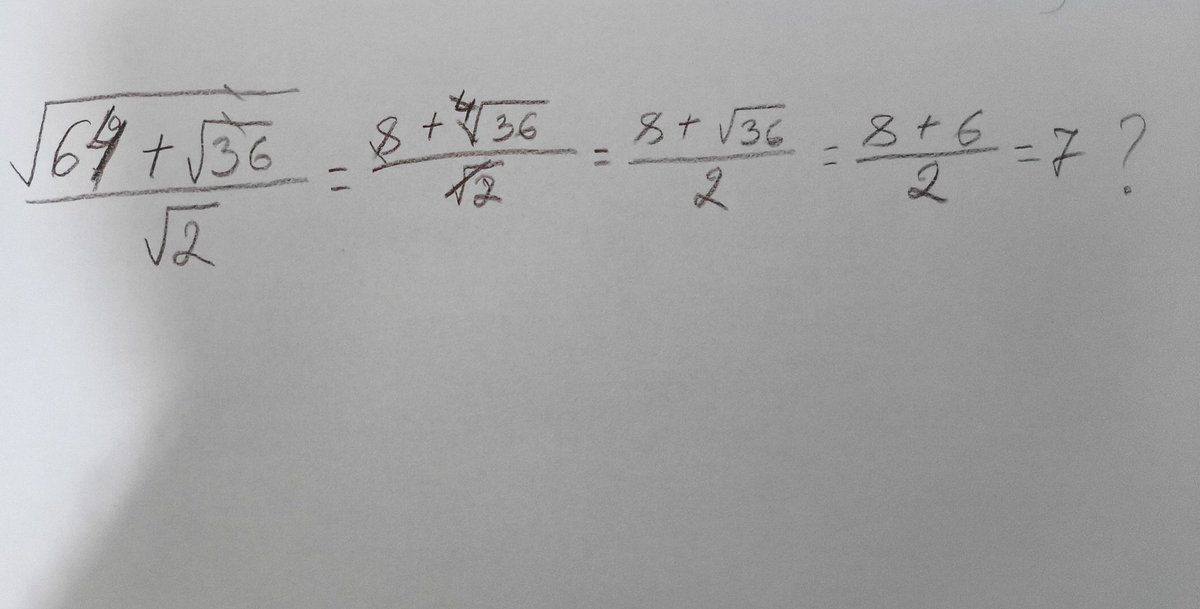 √(64 + √36) / √2 = (8 + ∜36) / √2 = (8 + √36) / 2 = (8 + 6) / 2 = 7 ?